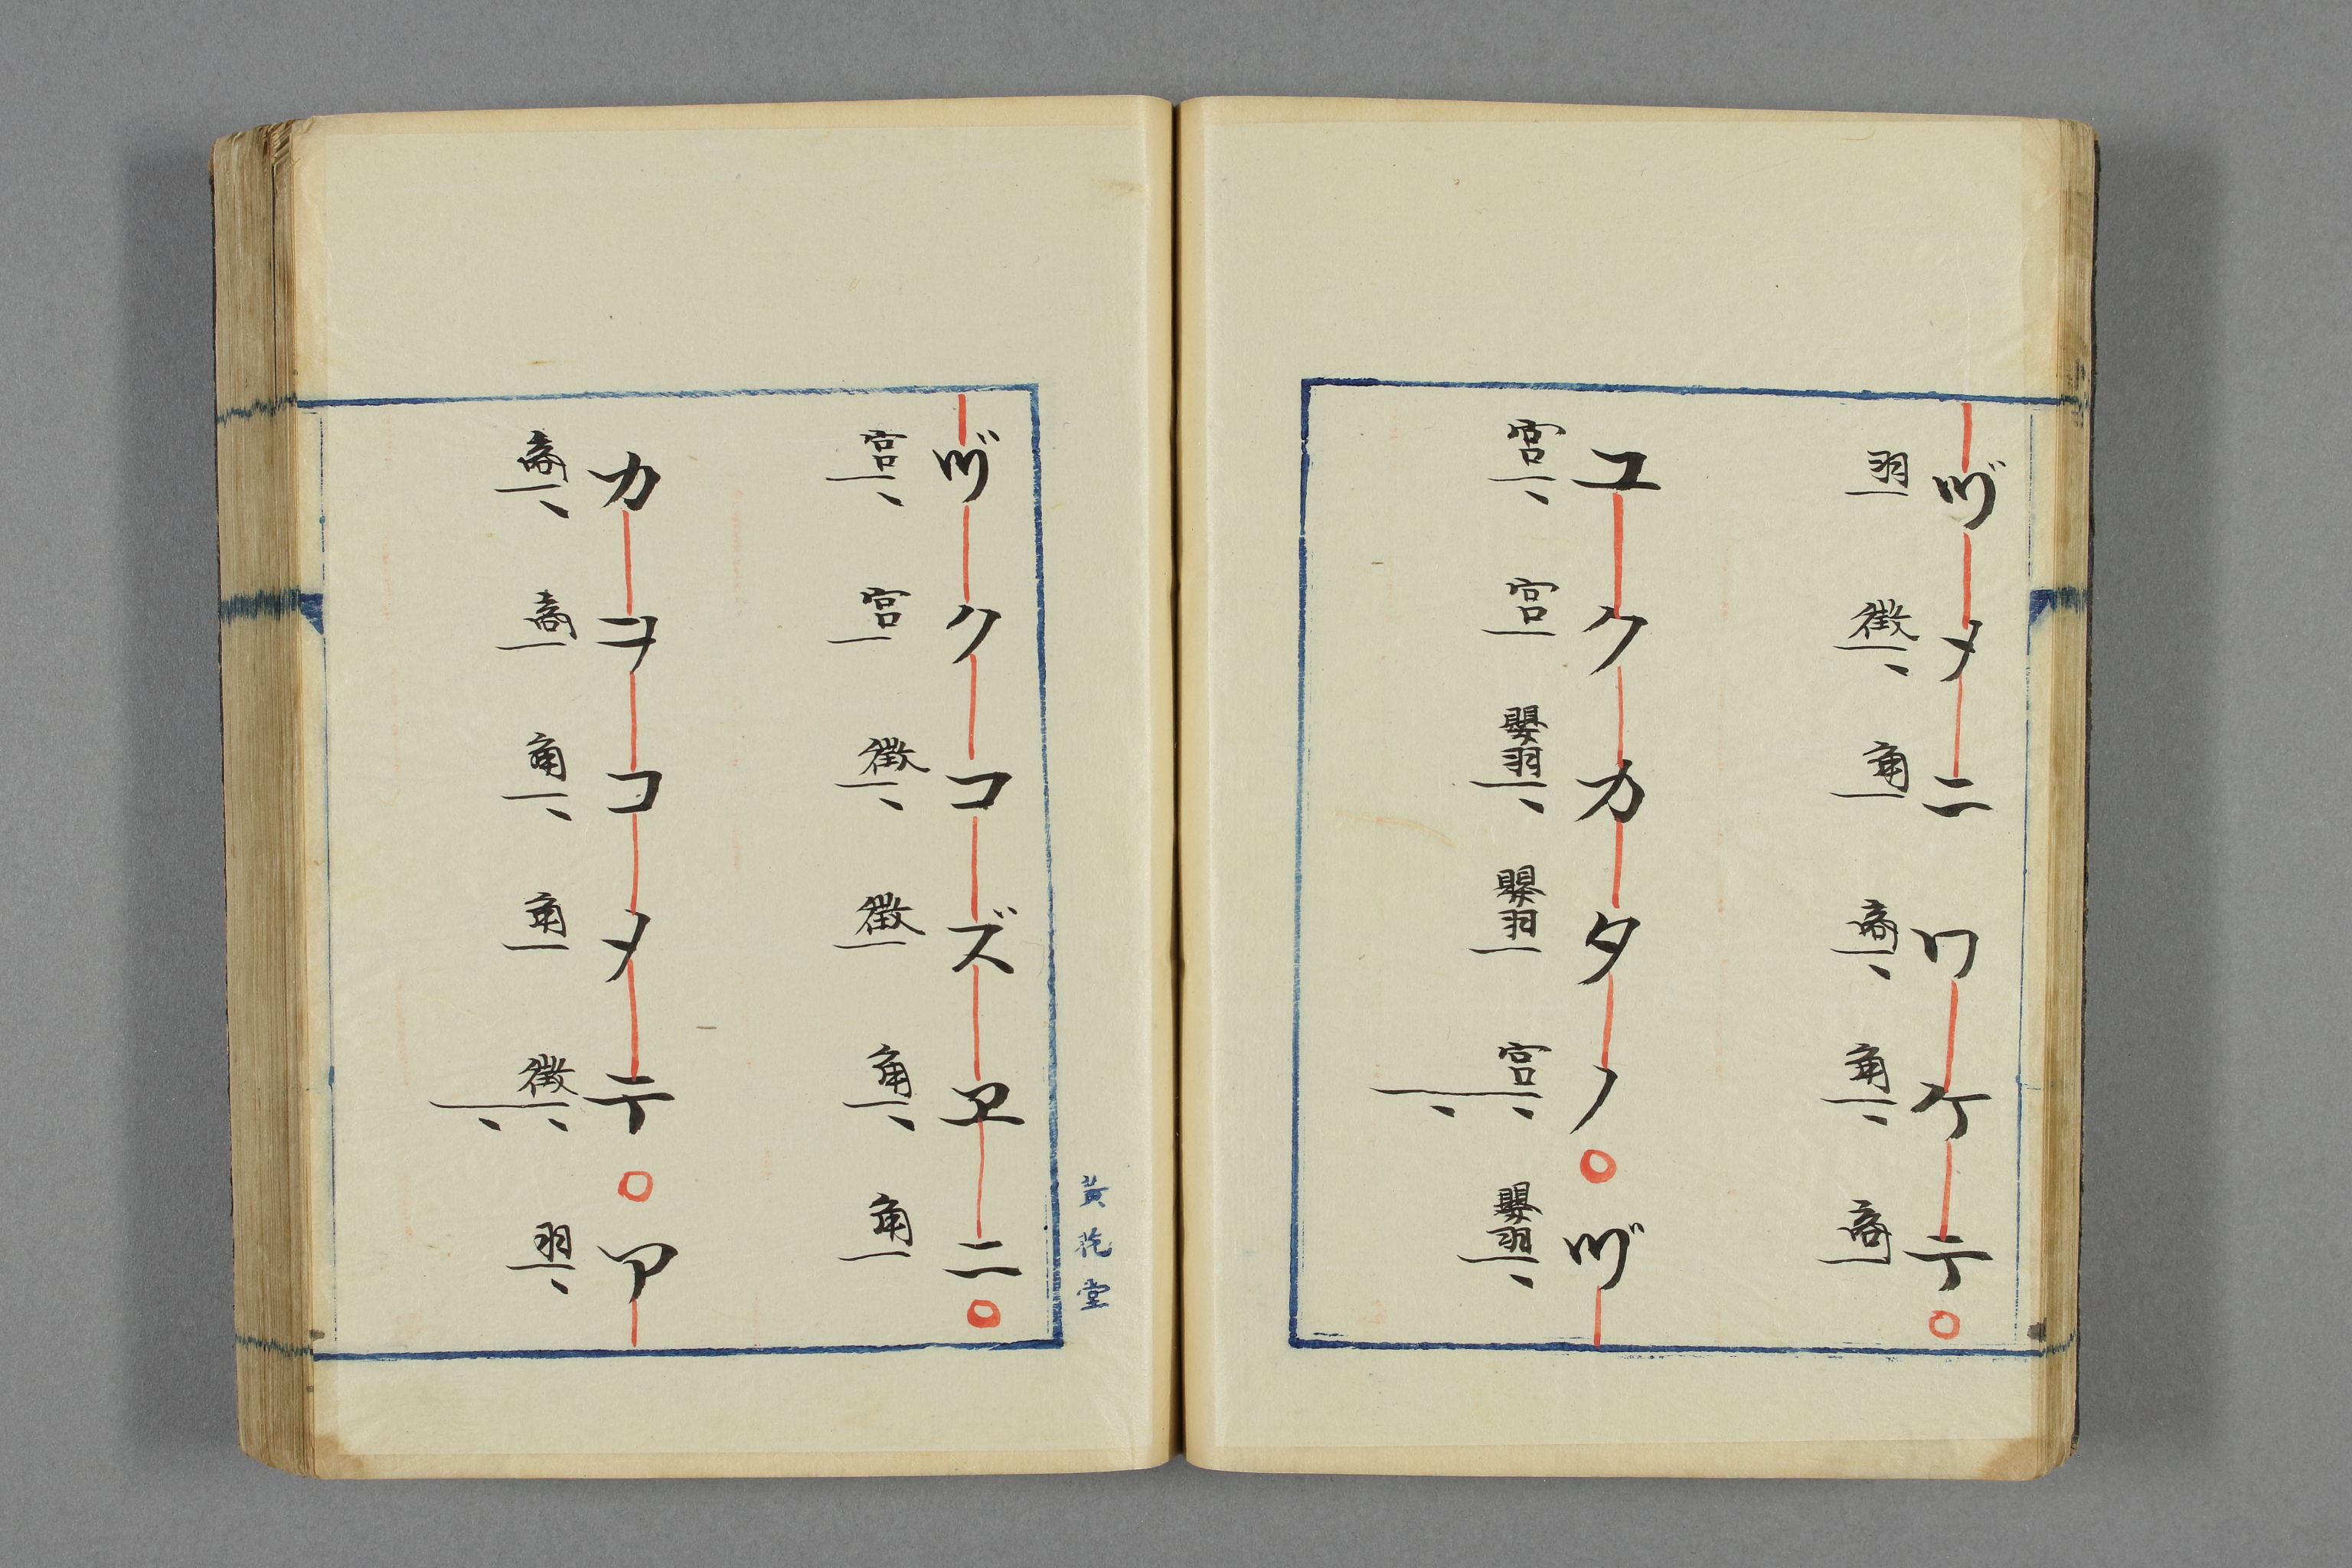 ヅメニワケテ○
羽徴角商角商
ユクカタノ○ヅ
宮宮嬰羽嬰羽宮嬰羽
黄 堂
ヅクコズヱニ○
宮宮徴徴角角
カヲコメテ○ア
商商角角徴羽